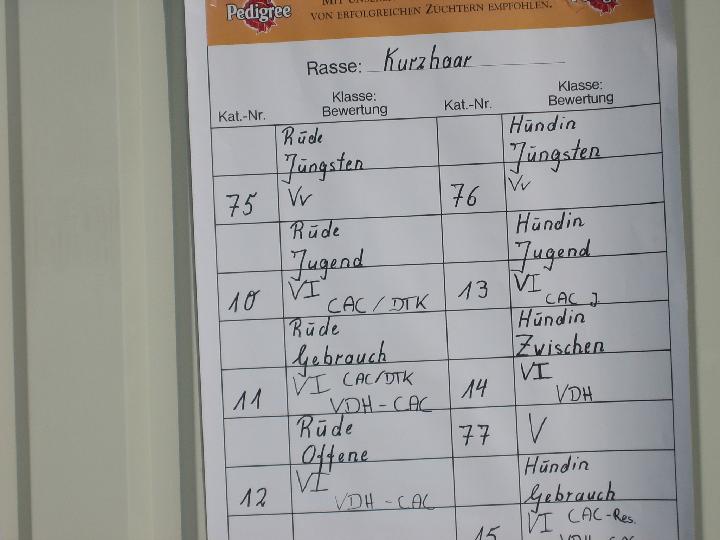 Pedigree
VON ERFOLGREICHEN ZÜCHTERN EMPFOHLEN.
Rasse: Kurzhaar
Kat.-Nr. Klasse: Bewertung Kat.-Nr. Klasse: Bewertung
Rüde Jüngsten Hündin Jüngsten
75 Vv 76 Vv
Rüde Jugend Hündin Jugend
10 VI CAC / DTK 13 VI CAC J
Rüde Gebrauch Hündin Zwischen
11 VI CAC/DTK VDH - CAC 14 VI VDH
Rüde Offene 77 V
12 VI VDH - CAC Hündin Gebrauch
15 VI CAC-Res.